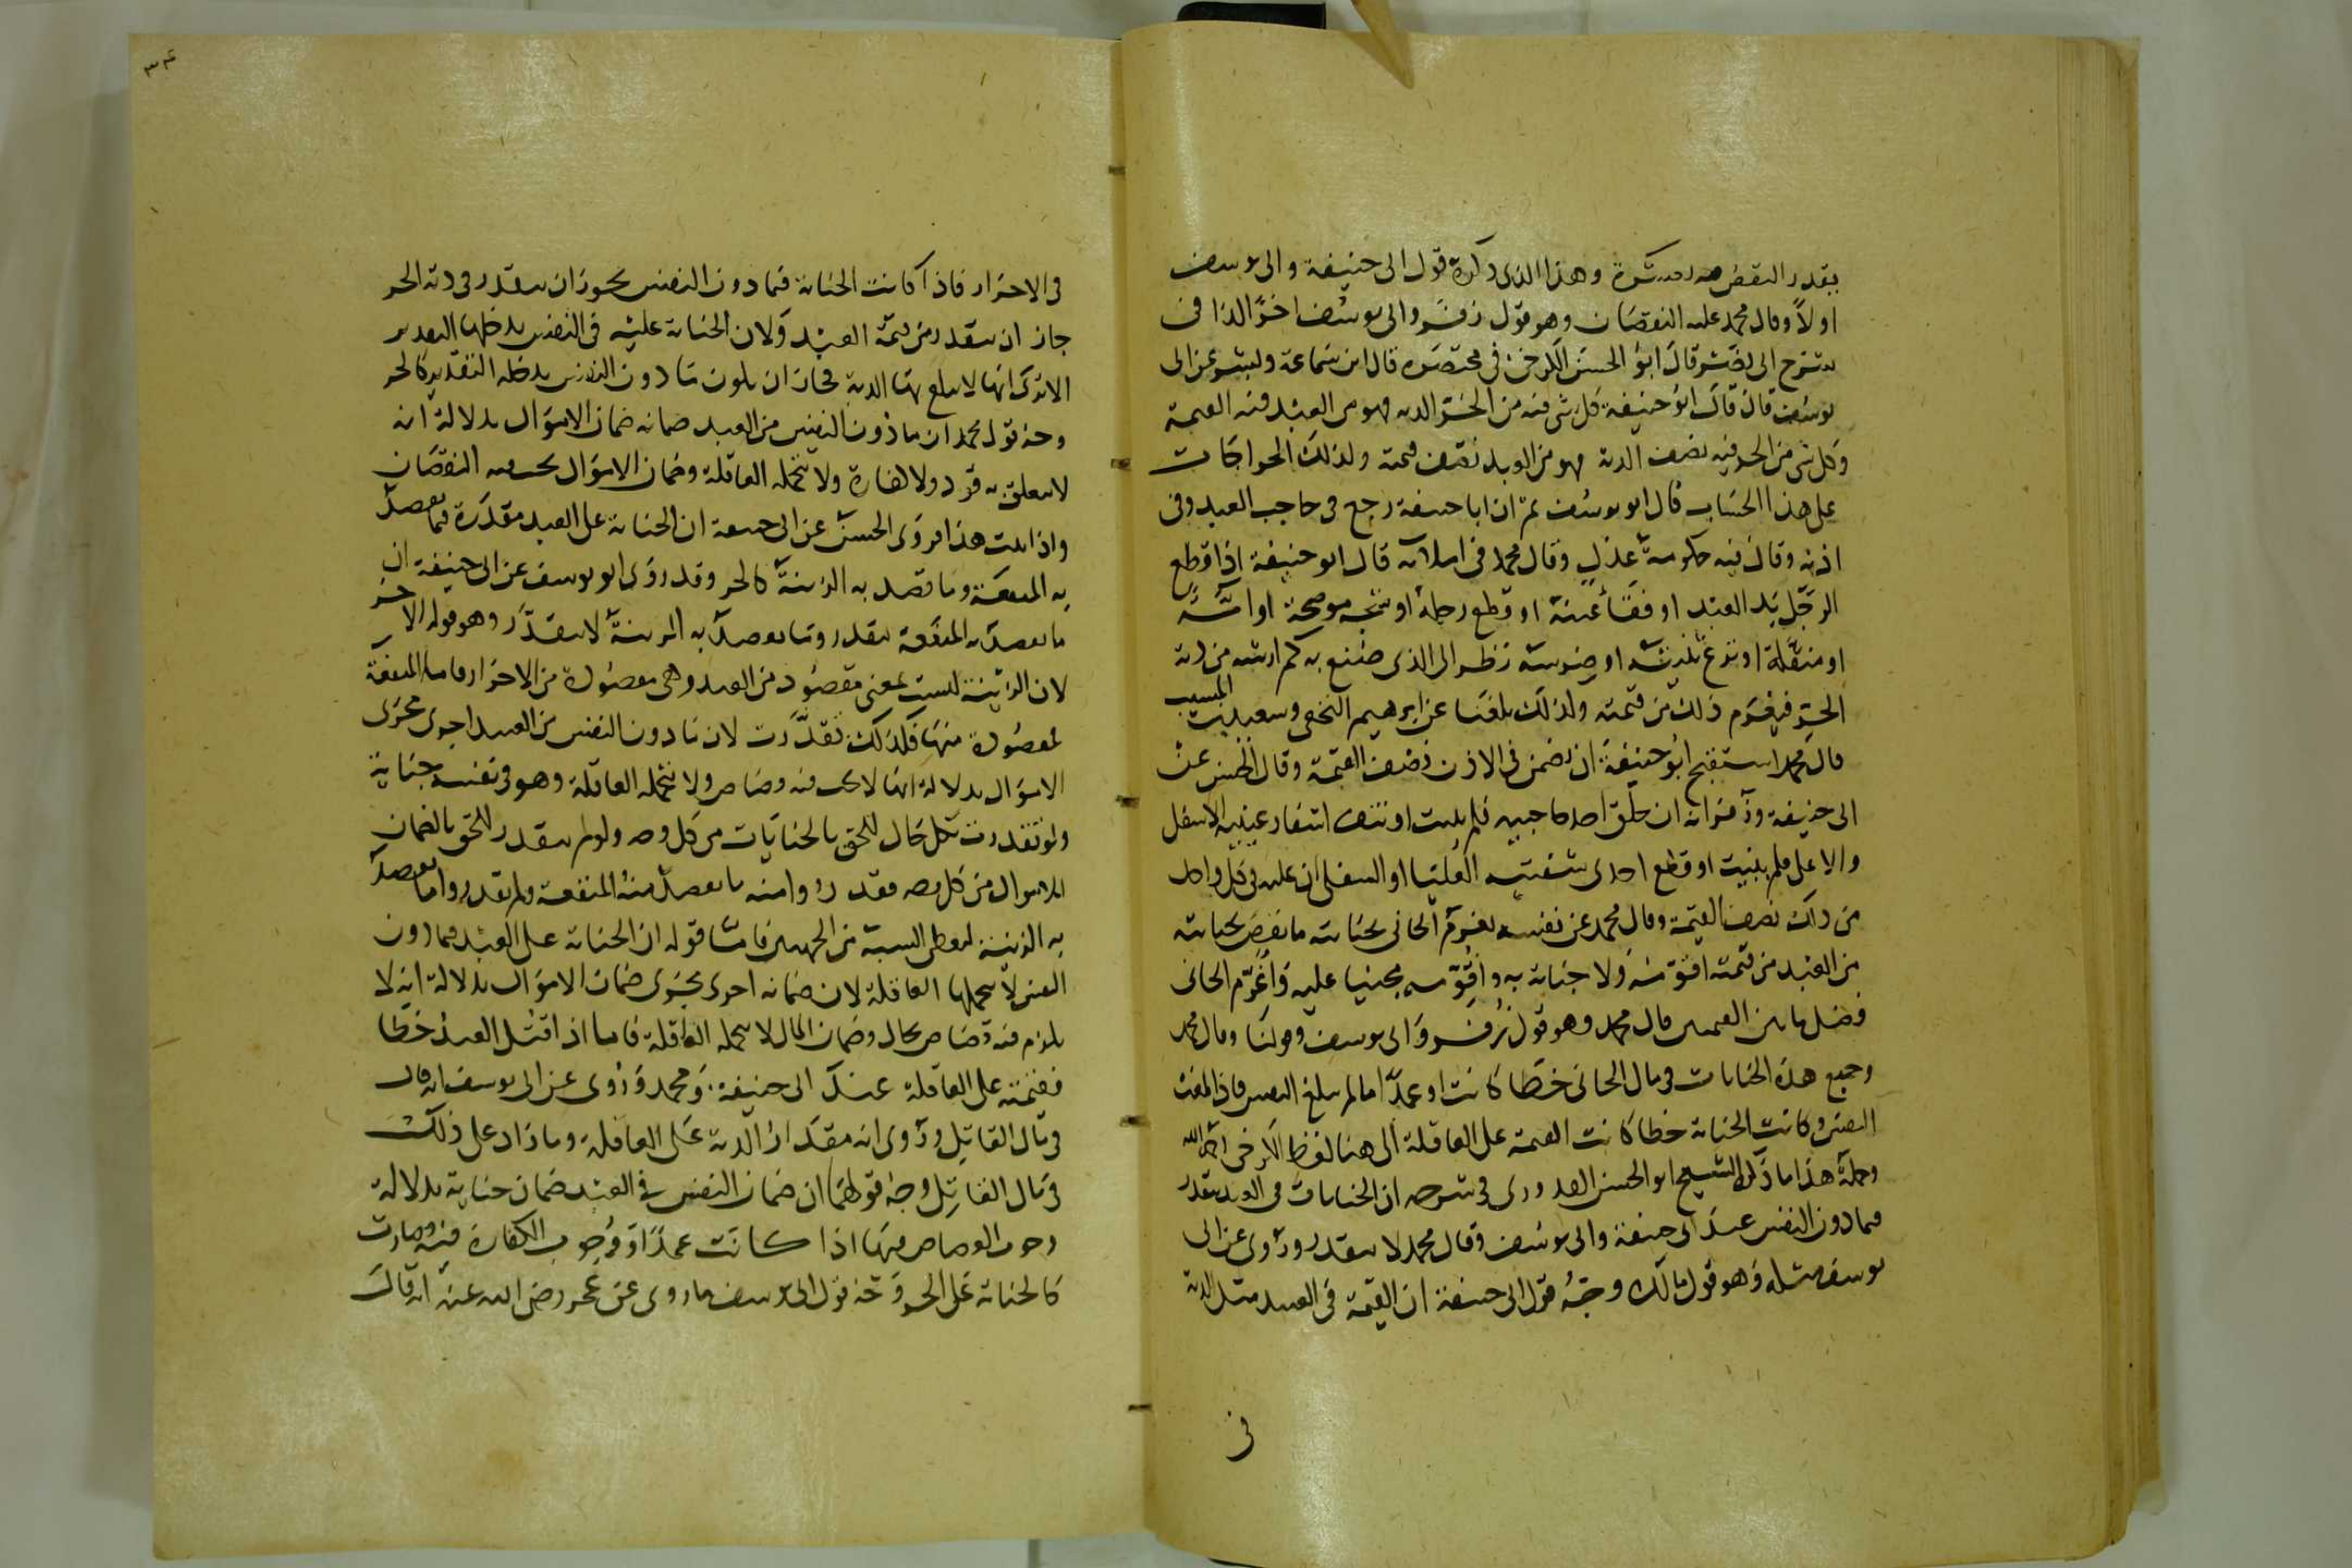 بقدر النقص وهذا الذي ذكره قول ابي حنيفة وابي يوسف
اولا وقال محمد عليه النقصان وهو قول زفر وابي يوسف اخرا الذا في
قال ابو الحسن الكرخي في مختصره قال ابن سماعة وبشر عن ابي
يوسف قال قال ابو حنيفة كل شي فيه من الحر الدية فهو من العبد فيه القيمة
وكل شي من الحر فيه نصف الدية فهو من العبد نصف قيمته وكذلك الجراحات
على هذا الحساب قال ابو يوسف ثم ان ابا حنيفة رجع في حاجب العبد وفي
اذنه وقال فيه حكومة عدل وقال محمد في املائه قال ابو حنيفة اذا قطع
الرجل يد العبد او فقأ عينه او قطع رجله او شجه موضحة او امة
او منقلة او نزع ثنيته او ضرسه نظر الى الذي صنع به كم ارشه من دية
الحر فيغرم ذلك من قيمته وكذلك بلغنا عن ابرهيم النخعي وسعيد بن المسيب
قال محمد استقبح ابو حنيفة ان يضمن في الاذن نصف القيمة وقال الحسن عن
ابي حنيفة وزفر انه ان حلق احد حاجبيه فلم ينبت او نتف اشفار عينيه الاسفل
والاعلى فلم ينبت او قطع احدى شفتيه العليا او السفلى ان عليه في كل واحد
من ذلك نصف القيمة وقال محمد عن نفسه يغرم الجاني بجنايته ما نقص بجنايته
من العبد من قيمته اقومه ولا جناية به واقومه مجنيا عليه واغرم الجاني
فضل ما بين القيمتين قال محمد وهو قول زفر وابي يوسف وقولنا وقال محمد
وجميع هذه الجنايات في مال الجاني خطا كانت او عمدا ما لم يبلغ النفس فاذا بلغت
النفس وكانت الجناية خطا كانت القيمة على العاقلة الى هنا لفظ الكرخي رحمه الله
وجملة هذا ما ذكر الشيخ ابو الحسن القدوري في شرحه ان الجنايات في العبد يتقدر
فيما دون النفس عند ابي حنيفة وابي يوسف وقال محمد لا يتقدر وروى عن ابي
يوسف مثله وهو قول مالك وجه قول ابي حنيفة ان القيمة في العبد مثل الدية
في
٣٤
في الاحرار فاذا كانت الجناية فيما دون النفس يجوز ان يتقدر في دية الحر
جاز ان يتقدر من قيمة العبد ولان الجناية عليه في النفس يدخلها التقدير
الا ترى انها لا يبلغ بها الدية فجاز ان يكون ما دون النفس يدخله التقدير كالحر
وجه قول محمد ان ما دون النفس من العبد ضمانه ضمان الاموال بدلالة انه
لا يتعلق به قود ولا كفارة ولا تتحمله العاقلة وضمان الاموال يجب فيه النقصان
واذا ثبت هذا فروى الحسن عن ابي حنيفة ان الجناية على العبد مقدرة فيما يقصد
به المنفعة وما يقصد به الزينة كالحر وقد روى ابو يوسف عن ابي حنيفة ان
ما يقصد به المنفعة يتقدر وما يقصد به الزينة لا يتقدر وهو قوله الاخر
لان الزينة ليست بمعنى مقصود من العبد وهي مقصودة من الاحرار فاما المنفعة
فمقصودة منها فلذلك تقدرت لان ما دون النفس من العبد اجري مجرى
الاموال بدلالة انها لا يجب فيه قصاص ولا تتحمله العاقلة وهو في نفسه جناية
ولو تقدرت بكل حال للحق بالجنايات من كل وجه ولو لم يتقدر للحق بالضمان
الاموال من كل وجه فقدروا منه ما يقصد منه المنفعة ولم يقدروا ما يقصد
به الزينة ليعطى الشبه من الجهتين فاما قوله ان الجناية على العبد فيما دون
النفس لا تتحملها العاقلة لان ضمانه اجري مجرى ضمان الاموال بدلالة انه لا
يلزم فيه قصاص بحال وضمان المال لا تتحمله العاقلة فاما اذا قتل العبد خطا
فقيمته على العاقلة عند ابي حنيفة ومحمد وروى عن ابي يوسف انه قال
في مال القاتل وروى انه مقدار الدية على العاقلة وما زاد على ذلك
في مال القاتل وجه قولهما ان ضمان النفس في العبد ضمان جناية بدلالة
وجوب القصاص فيها اذا كانت عمدا او وجوب الكفارة فيه فصارت
كالجناية على الحر وجه قول ابي يوسف ما روى عن عمر رضي الله عنه انه قال